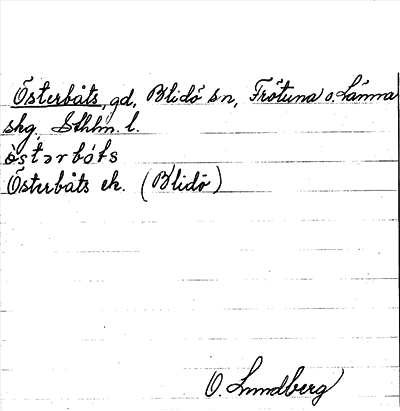 Österbåts, gd, Blidö sn, Frötuna o. Länna
skg, Sthlm. l.
ö̀stərbó̀ts
Österbåts ek. (Blidö)
O. Lundberg